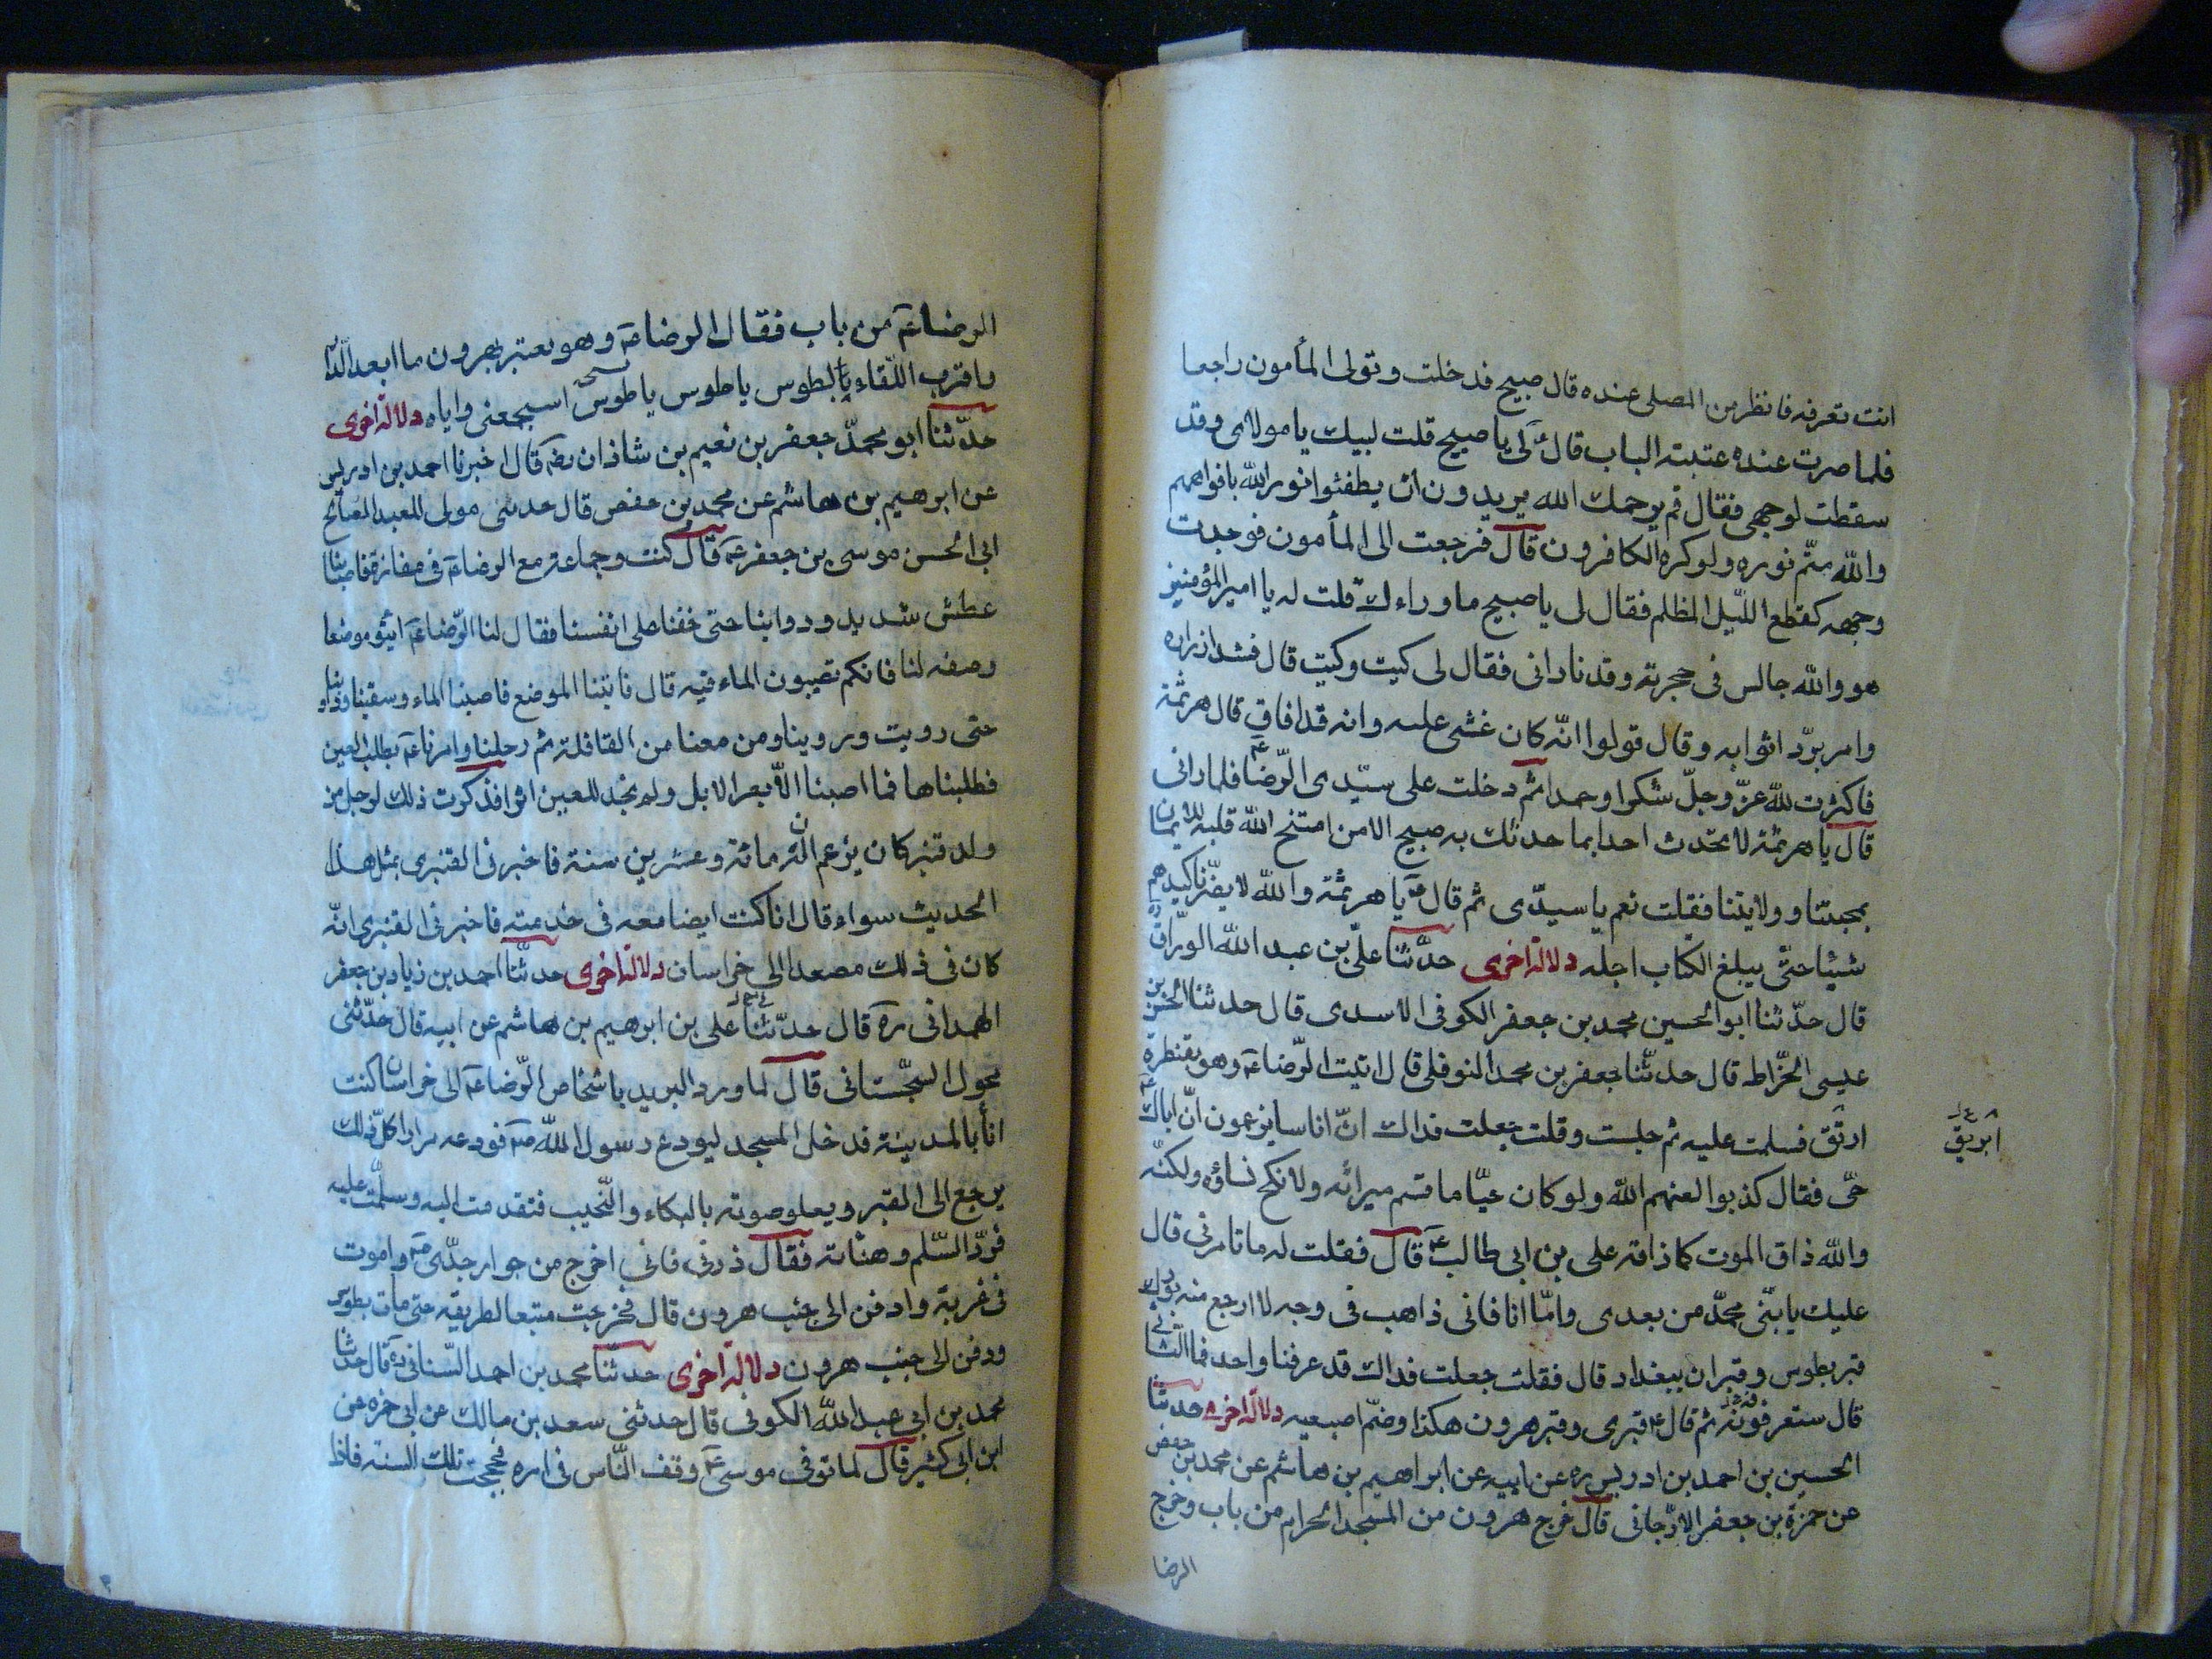 انت تعرفه فانظر من المصلى عنده قال صبيح فدخلت وتولى المأمون راجعا
فلما صرت عنده عتبة الباب قال ع لى يا صبيح قلت لبيك يا مولاى وقد
سقطت لوجهى فقال قم يرحمك الله يريدون ان يطفئوا نور الله بافواههم
والله متم نوره ولو كره الكافرون قال فرجعت الى المأمون فوجدت
وجهه كقطع الليل المظلم فقال لى يا صبيح ما وراءك قلت له يا امير المؤمنين
هو والله جالس فى حجرته وقد نادانى فقال لى كيت وكيت قال فشد ازراره
وامر برد اثوابه وقال قولوا انه كان غشى عليه وانه قد افاق قال هرثمة
فاكثرت لله عز وجل شكرا وحمدا ثم دخلت على سيدى الرضا ع فلما رانى
قال يا هرثمة لا تحدث احدا بما حدثك به صبيح الا من امتحن الله قلبه للايمان
بمحبتنا وولايتنا فقلت نعم يا سيدى ثم قال ع يا هرثمة والله لا يضرنا كيدهم
شيئا حتى يبلغ الكتاب اجله دلالة اخرى حدثنا على بن عبد الله الوراق ره
قال حدثنا ابو الحسين محمد بن جعفر الكوفى الاسدى قال حدثنا الحسن بن
عيسى الخراط قال حدثنا جعفر بن محمد النوفلى قال اتيت الرضا ع وهو بقنطرة
اربق فسلمت عليه ثم جلست وقلت جعلت فداك ان اناسا يزعمون ان اباك ع
ابريق
حى فقال كذبوا لعنهم الله ولو كان حيا ما قسم ميراثه ولا نكح نساؤه ولكنه
والله ذاق الموت كما ذاقه على بن ابى طالب ع قال فقلت له ما تامرنى قال
عليك يا بنى محمد من بعدى واما انا فانى ذاهب فى وجه لا ارجع منه بورك
قبر بطوس وقبران ببغداد قال فقلت جعلت فداك قد عرفنا واحد فما الثانى
قال ستعرفونه ثم قال ع قبرى وقبر هرون هكذا وضم اصبعيه دلالة اخرى حدثنا
الحسين بن احمد بن ادريس ره عن ابيه عن ابراهيم بن هاشم عن محمد بن حفص
عن حمزة بن جعفر الارجانى قال خرج هرون من المسجد الحرام من باب وخرج
الرضا
الرضا ع من باب فقال الرضا ع وهو يعتبر بهرون ما ابعد الدار
واقرب اللقاء بطوس يا طوس يا طوس ستجمعنى واياه دلالة اخرى
حدثنا ابو محمد جعفر بن نعيم بن شاذان رضه قال اخبرنا احمد بن ادريس
عن ابرهيم بن هاشم عن محمد بن حفص قال حدثنى مولى للعبد الصالح
ابى الحسن موسى بن جعفر ع قال كنت وجماعة مع الرضا ع فى مفازة فاصابنا
عطش شديد ودوابنا حتى خفنا على انفسنا فقال لنا الرضا ع ايتوا موضعا
وصفه لنا فانكم تصيبون الماء فيه قال فاتينا الموضع فاصبنا الماء وسقينا دوابنا
حتى رويت وروينا ومن معنا من القافلة ثم رحلنا وامرنا ع بطلب العين
فطلبناها فما اصبنا الا بعر الابل ولم نجد للعين اثرا فذكرت ذلك لرجل من
ولد قنبر كان يزعم ان له مائة وعشرين سنة فاخبرنى القنبرى بمثل هذا
الحديث سواء قال انا كنت ايضا معه فى خدمته فاخبرنى القنبرى انه
كان فى ذلك مصعدا الى خراسان دلالة اخرى حدثنا احمد بن زياد بن جعفر
الهمدانى ره قال حدثنا على بن ابرهيم بن هاشم عن ابيه قال حدثنى
محول السجستانى قال لما ورد البريد باشخاص الرضا ع الى خراسان كنت
انا بالمدينة فدخل المسجد ليودع رسول الله ص فودعه مرارا كل ذلك
يرجع الى القبر ويعلو صوته بالبكاء والنحيب فتقدمت اليه وسلمت عليه
فرد السلم وهناته فقال ذرنى فانى اخرج من جوار جدى ص واموت
فى غربة وادفن الى جنب هرون قال فخرجت متبعا لطريقه حتى مات بطوس
ودفن الى جنب هرون دلالة اخرى حدثنا محمد بن احمد السنانى ره قال حدثنا
محمد بن ابى عبد الله الكوفى قال حدثنى سعد بن مالك عن ابى حمزة عن
ابن ابى كثير قال لما توفى موسى ع وقف الناس فى امره فحججت تلك السنة فاذا